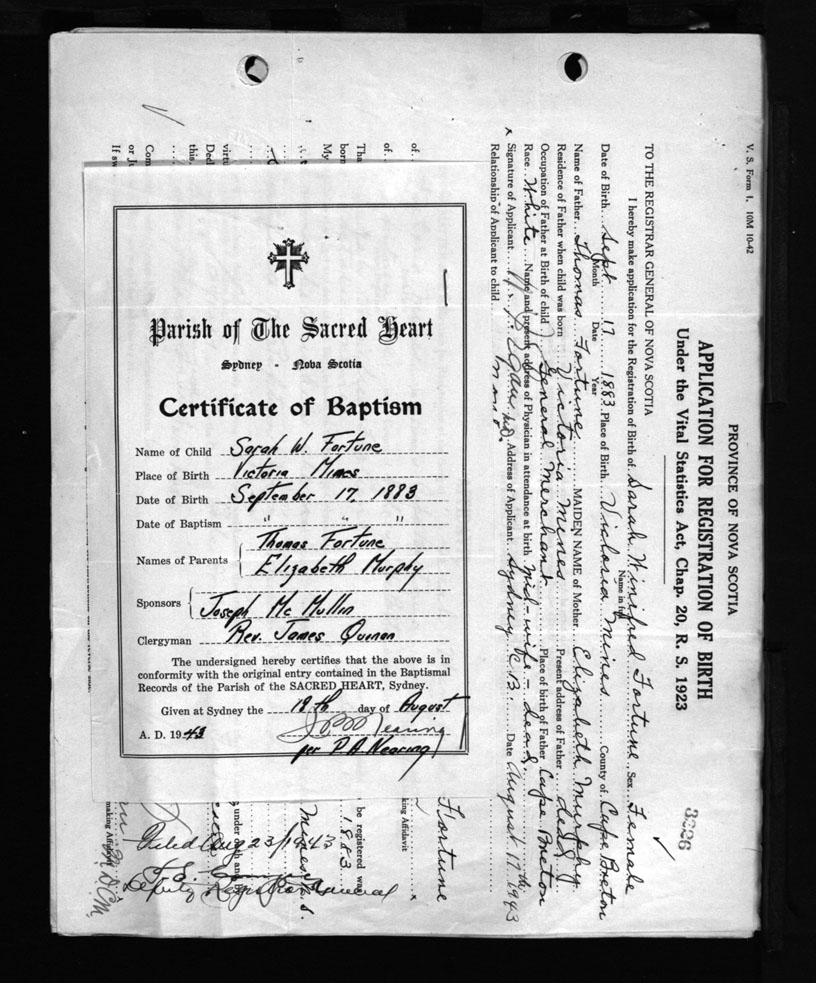 V. S. Form 1. 10M 10-42
PROVINCE OF NOVA SCOTIA
APPLICATION FOR REGISTRATION OF BIRTH
Under the Vital Statistics Act, Chap. 20, R. S. 1923
3226
TO THE REGISTRAR GENERAL OF NOVA SCOTIA
I hereby make application for the Registration of Birth of Sarah Winifred Fortune Sex Female
Name in full
Date of Birth Sept 17 1883 Place of Birth Victoria Mines County of Cape Breton
Month Date Year
Name of Father Thomas Fortune MAIDEN NAME of Mother Elizabeth Murphy
Residence of Father when child was born Victoria Mines Present address of Father dead
Occupation of Father at Birth of child General Merchant Place of birth of Father Cape Breton
Race White Name and present address of Physician in attendance at birth Mid-wife - dead
x Signature of Applicant Address of Applicant Sydney C.B. Date August 17th 1943
Relationship of Applicant to child
Parish of The Sacred Heart
Sydney - Nova Scotia
Certificate of Baptism
Name of Child Sarah W. Fortune
Place of Birth Victoria Mines
Date of Birth September 17, 1883
Date of Baptism " " "
Names of Parents Thomas Fortune
Elizabeth Murphy
Sponsors Joseph Mc Mullin
Clergyman Rev. James Quinan
The undersigned hereby certifies that the above is in
conformity with the original entry contained in the Baptismal
Records of the Parish of the SACRED HEART, Sydney.
Given at Sydney the 18th day of August
A. D. 1943
Nearing
per P. A. Nearing
of
of
Tha
born
My
virtu
Ded
this
Com
or Ju
If sw
Fortune
king Affidavit x
be registered was
1883
Mines N.S.
under oath and
making Affidavit
Filed Aug 23/1943
Deputy Registrar General